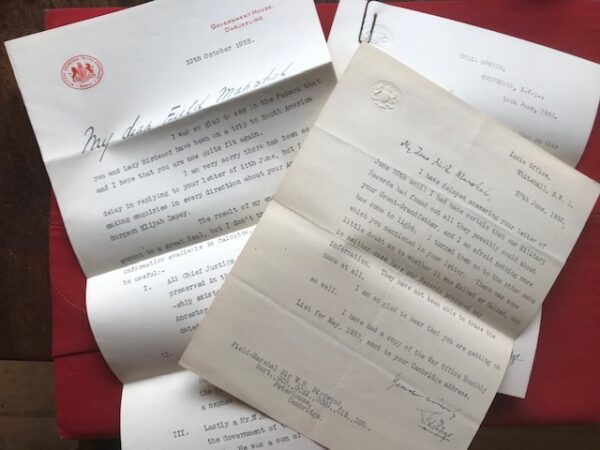 GOVERNMENT HOUSE,
DARJEELING.
10th October 1933.
My dear Field Marshal
I was so glad to see in the Papers that
you and Lady Birdwood have been on a trip to South America
and I hope that you are now quite fit again.
I am very sorry there has been so
delay in replying to your letter of 11th June, but I
making enquiries in every direction about your
Surgeon Elijah Impey. The result of my
amount to a great deal, but I don't
information available in Calcutta
be useful:-
I. All Chief Justice
preserved in
-ship
Ancestor
II.
the
a nephew
III. Lastly a Mr.
the Government of
He was a son of
INDIA OFFICE,
WHITEHALL, S.W.1.,
June, 1933.
India Office,
Whitehall, S.W. 1.
27th June, 1933.
My Dear Field Marshal
I have delayed answering your letter of
June 20th until I had made certain that our Military
Records had found out all they possibly could about
your Great-Grandfather, and I am afraid nothing more
has come to light. I turned them on to the other name
which you mentioned in your letter. There was some
little doubt as to whether it was or Halbed, but
in neither case do our Records produce any
information. They have not been able to trace the
name at all.
I am so glad to hear that you are getting on
so well.
I have had a copy of the War Office Monthly
List for May, 1933, sent to your Cambridge address.
Field-Marshal Sir W.R. Birdwood,
Bart., GCB., GCSI., GCMG., CIE., DSO.
Peterhouse,
Cambridge.